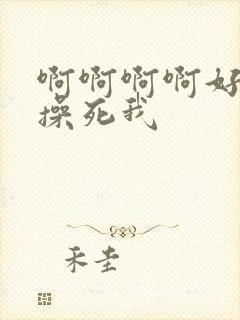 啊啊啊啊好
操死我
禾圭